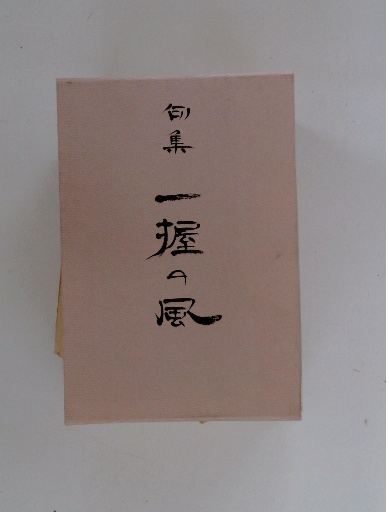 句集
一握の風